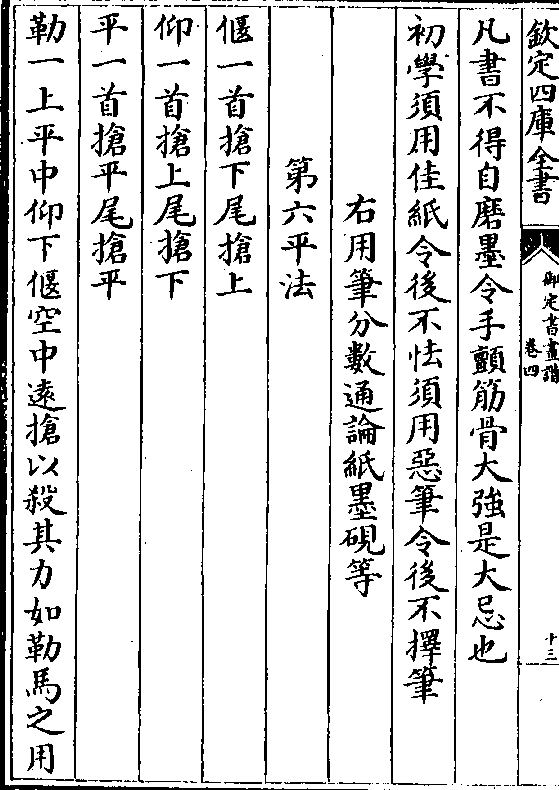 欽定四庫全書
御定書畫譜
卷四
十三
凡書不得自磨墨令手顫筋骨大強是大忌也
初學須用佳紙令後不怯須用惡筆令後不擇筆
右用筆分數通論紙墨硯等
第六平法
偃一首搶下尾搶上
仰一首搶上尾搶下
平一首搶平尾搶平
勒一上平中仰下偃空中遠搶以殺其力如勒馬之用